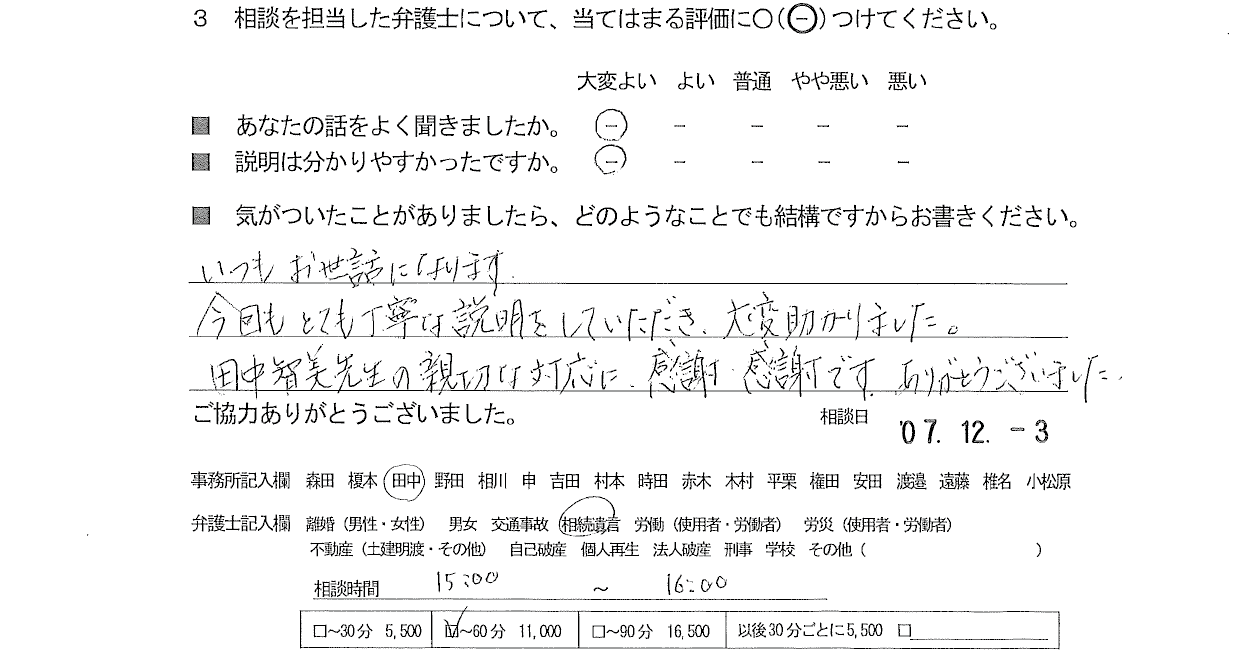 3 相談を担当した弁護士について、当てはまる評価に○(－)つけてください。
大変よい よい 普通 やや悪い 悪い
■ あなたの話をよく聞きましたか。 － － － － －
■ 説明は分かりやすかったですか。 － － － － －
■ 気がついたことがありましたら、どのようなことでも結構ですからお書きください。
いつもお世話になります.
今回もとても丁寧な説明をしていただき、大変助かりました。
田中智美先生の親切な対応に、感謝・感謝です. ありがとうございました.
ご協力ありがとうございました。
相談日 '07.12.-3
事務所記入欄 森田 榎本 田中 野田 相川 申 吉田 村本 時田 赤木 木村 平栗 権田 安田 渡邉 遠藤 椎名 小松原
弁護士記入欄 離婚（男性・女性） 男女 交通事故 相続遺言 労働（使用者・労働者） 労災（使用者・労働者）
不動産（土建明渡・その他） 自己破産 個人再生 法人破産 刑事 学校 その他（ ）
相談時間 15:00 ～ 16:00
□～30分 5,500 ☑～60分 11,000 □～90分 16,500 以後30分ごとに5,500 □